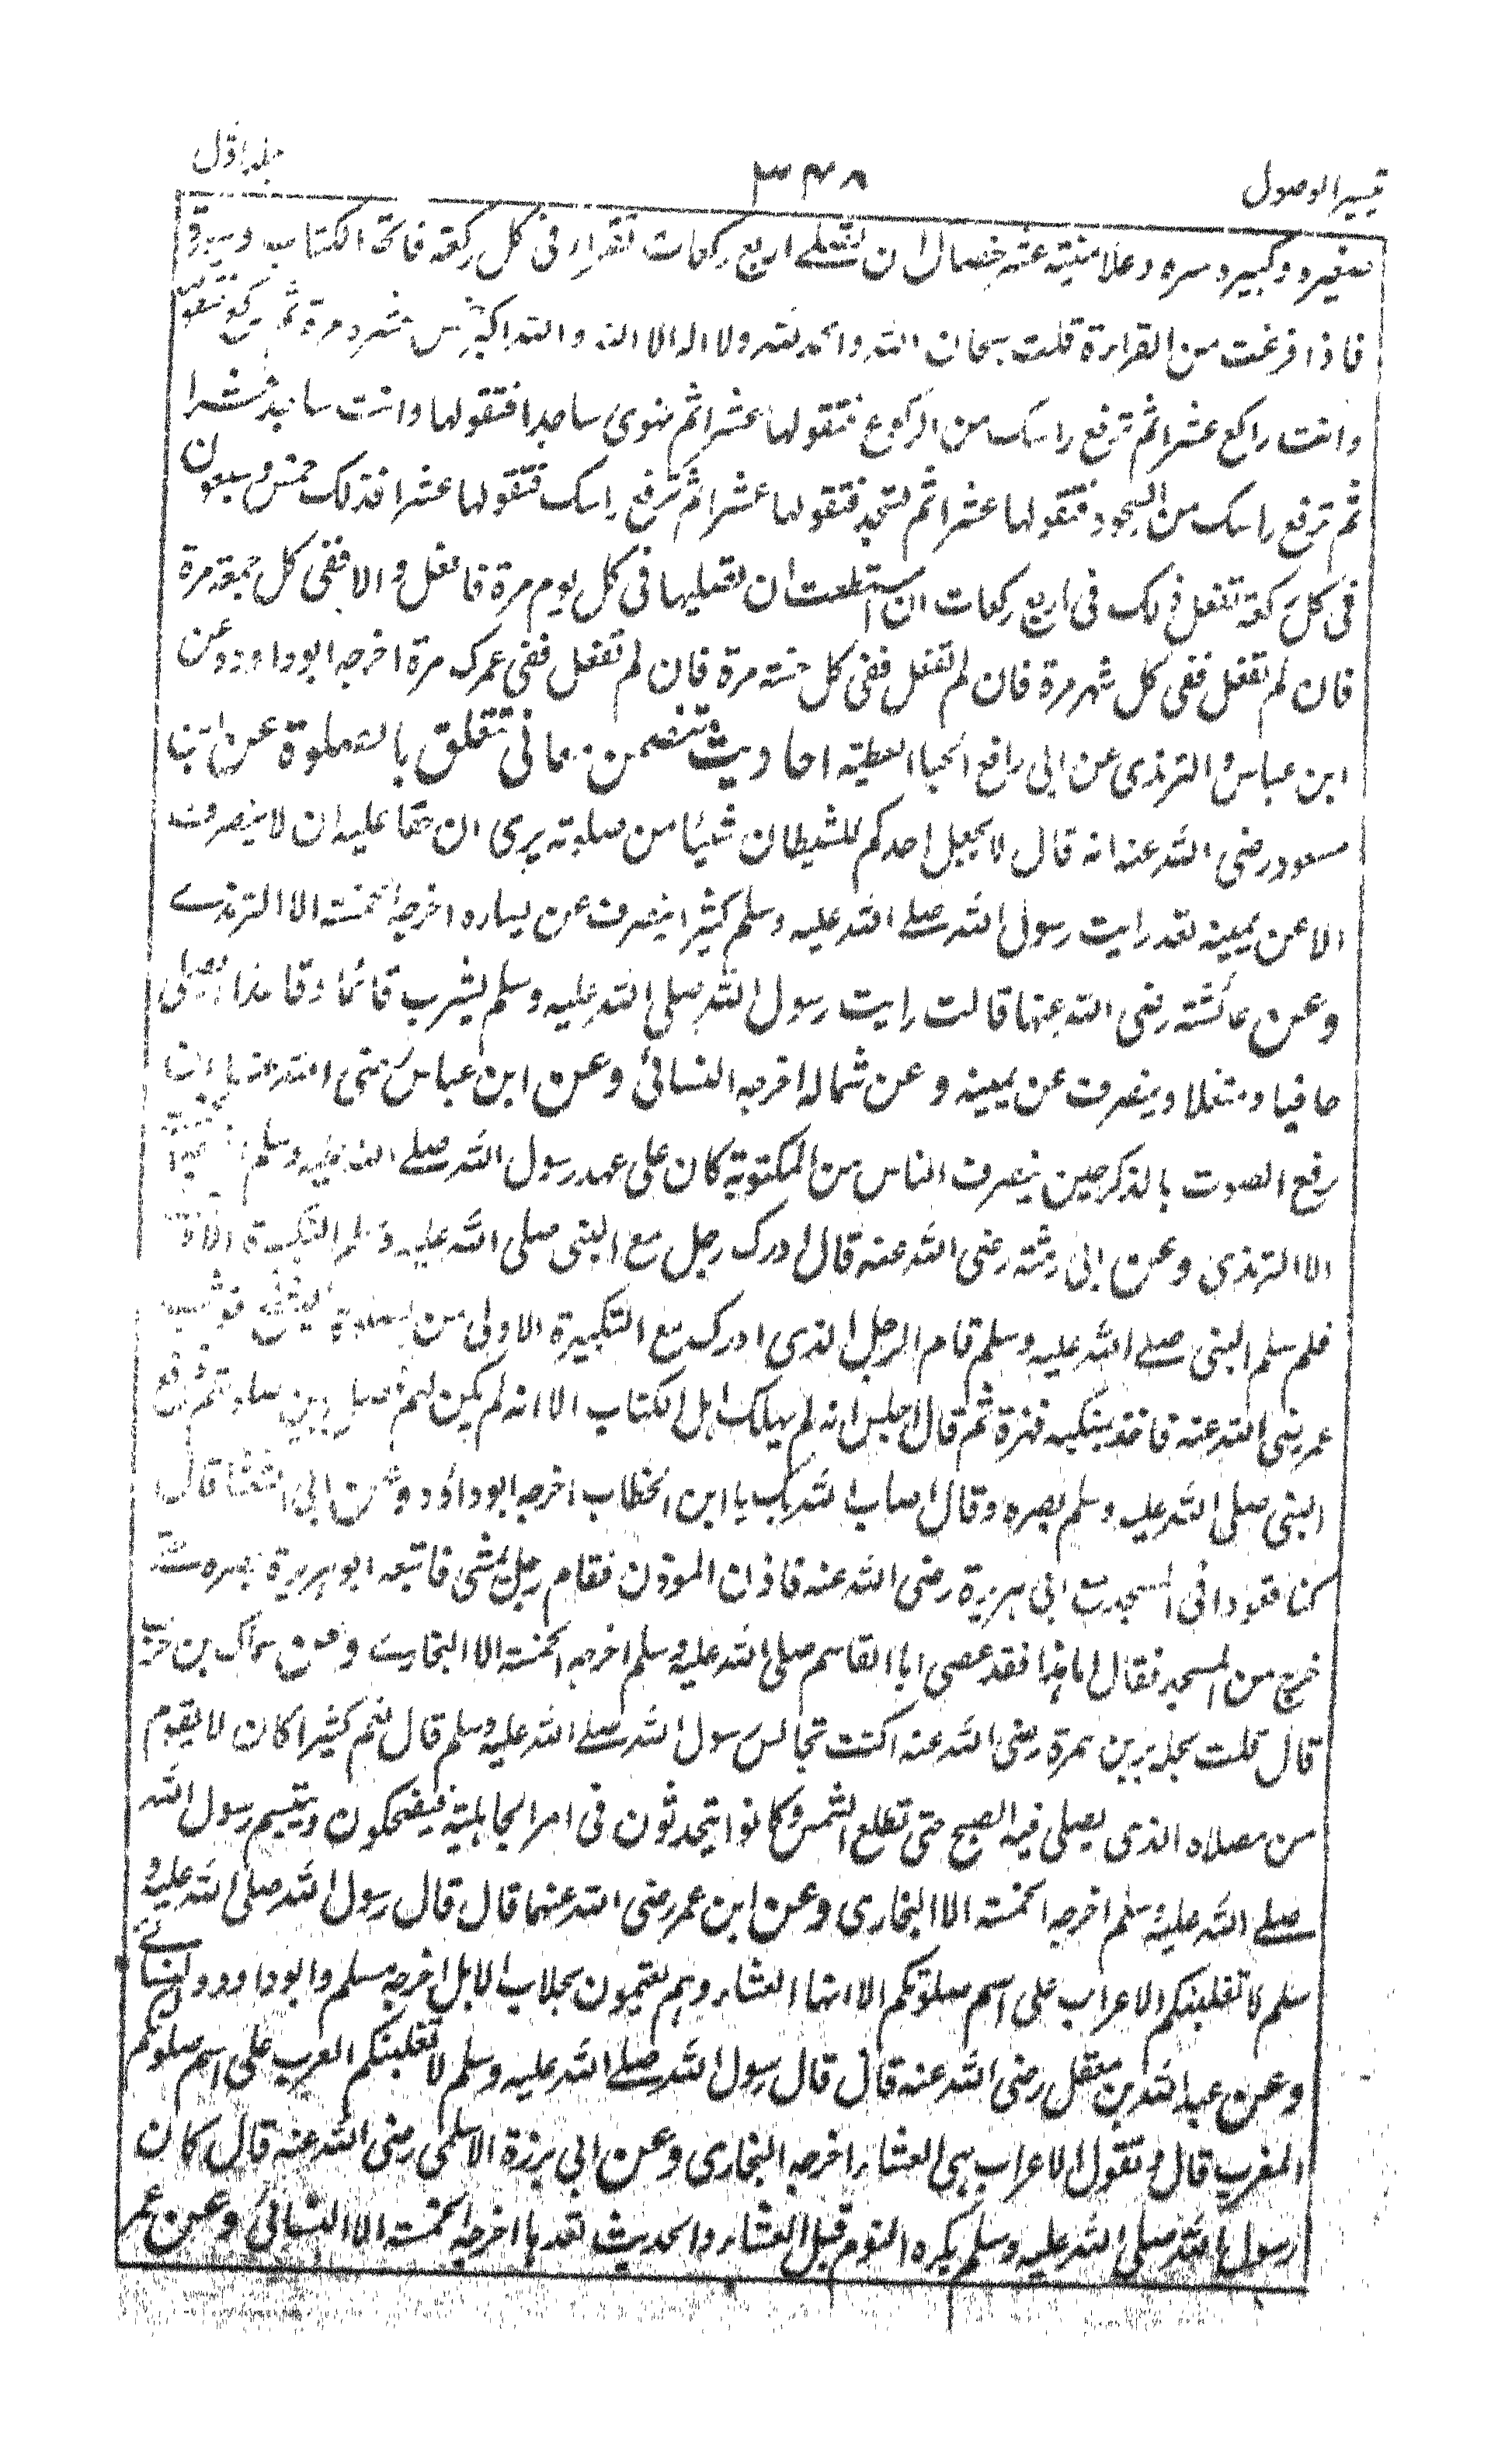 تيسير الوصول ٣٤٨ جلد اوّل
صغيره وكبيره سره وعلانيته عشر خصال ان تصلے اربع ركعات تقرأ فى كل ركعة فاتحة الكتاب وسورة
فاذا فرغت من القراءة قلت سبحان الله والحمد لله ولا اله الا الله والله اكبر خمس عشرة مرة ثم تركع فتقولها
وانت راكع عشرا ثم ترفع راسك من الركوع فتقولها عشرا ثم تهوى ساجدا فتقولها وانت ساجد عشرا
ثم ترفع راسك من السجود فتقولها عشرا ثم تسجد فتقولها عشرا ثم ترفع راسك فتقولها عشرا فذلك خمس وسبعون
فى كل ركعة تفعل ذلك فى اربع ركعات ان استطعت ان تصليها فى كل يوم مرة فافعل والا ففى كل جمعة مرة
فان لم تفعل ففى كل شهر مرة فان لم تفعل ففى كل سنة مرة فان لم تفعل ففى عمرك مرة اخرجه ابو داود وعن
ابن عباس والترمذى عن ابى رافع الحبا العطية احاديث تتضمن معانى تتعلق بالصلوة عن ابن
مسعود رضى الله عنه انه قال لا يجعل احدكم للشيطان شيئا من صلوته يرى ان حقا عليه ان لا ينصرف
الا عن يمينه لقد رايت رسول الله صلے الله عليه وسلم كثيرا ينصرف عن يساره اخرجه الخمسة الا الترمذے
وعن عائشة رضى الله عنها قالت رايت رسول الله صلى الله عليه وسلم يشرب قائما وقاعدا ويصلى
حافيا ومنتعلا وينصرف عن يمينه وعن شماله اخرجه النسائى وعن ابن عباس رضى الله عنهما ان
رفع الصوت بالذكر حين ينصرف الناس من المكتوبة كان على عهد رسول الله صلے الله عليه وسلم
الا الترمذى وعن ابى رمثة رضى الله عنه قال ادرك رجل مع النبى صلى الله عليه وسلم التكبيرة الاولى
فلم سلم النبى صلے الله عليه وسلم قام الرجل الذى ادرك مع التكبيرة الاولى من الصلوة ليشفع فوثب
عمر رضى الله عنه فاخذ بمنكبه فهزه ثم قال اجلس انه لم يهلك اهل الكتاب الا انه لم يكن لهم فصل بين صلوتهم فرفع
النبى صلى الله عليه وسلم بصره وقال اصاب الله بك يا ابن الخطاب اخرجه ابو داؤد وعن ابى الشعثا قال
كنا قعودا فى المسجد مع ابى هريرة رضى الله عنه فاذن المؤذن فقام رجل يمشى فاتبعه ابو هريرة بصره حتے
خرج من المسجد فقال اما هذا فقد عصى ابا القاسم صلى الله عليه وسلم اخرجه الخمسة الا البخارے وعن سماك بن حرب
قال قلت لجابر بن سمرة رضى الله عنه اكنت تجالس رسول الله صلے الله عليه وسلم قال نعم كثيرا كان لا يقوم
من مصلاه الذى يصلى فيه الصبح حتى تطلع الشمس وكانوا يتحدثون فى امر الجاهلية فيضحكون ويتبسم رسول الله
صلے الله عليه وسلم اخرجه الخمسة الا البخارى وعن ابن عمر رضى الله عنهما قال قال رسول الله صلى الله عليه و
سلم لا تغلبنكم الاعراب على اسم صلوتكم الا انها العشاء وهم يعتمون بحلاب الابل اخرجه مسلم وابو داود والنسائے
وعن عبد الله بن مغفل رضى الله عنه قال قال رسول الله صلے الله عليه وسلم لا تغلبنكم العرب على اسم صلوتكم
المغرب قال وتقول الاعراب هى العشاء اخرجه البخارى وعن ابى برزة الاسلمى رضى الله عنه قال كان
رسول الله صلى الله عليه وسلم يكره النوم قبل العشاء والحديث بعدها اخرجه الخمسة الا النسائى وعن عمر